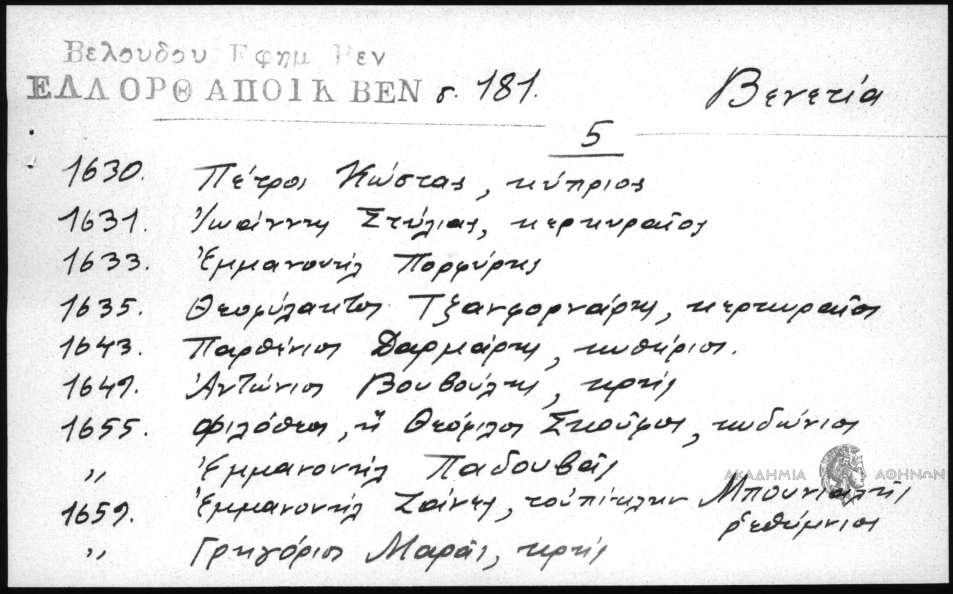 Βελούδου Εφημ Βεν
ΕΛΛ ΟΡΘ ΑΠΟΙΚ ΒΕΝ σ. 181. Βενετία
5
1630. Πέτρος Κώστας, κύπριος
1631. Ἰωάννης Στύλιας, κερκυραῖος
1633. Ἐμμανουήλ Πορφύρης
1635. Θεοφύλακτος Τζανφορνάρης, κερκυραῖος
1643. Παρθένιος Δαρμάρης, κυθήριος.
1649. Ἀντώνιος Βουβούλης, κρής
1655. Φιλόθεος, ἤ Θεόφιλος Σκοῦφος, κυδώνιος
〃 Ἐμμανουήλ Παδουβᾶς
ΑΚΑΔΗΜΙΑ ΑΘΗΝΩΝ
1659. Ἐμμανουήλ Ζάνες, τοὐπίκλην Μπουνιαλῆς
ῥεθύμνιος
〃 Γρηγόριος Μαρᾶς, κρής